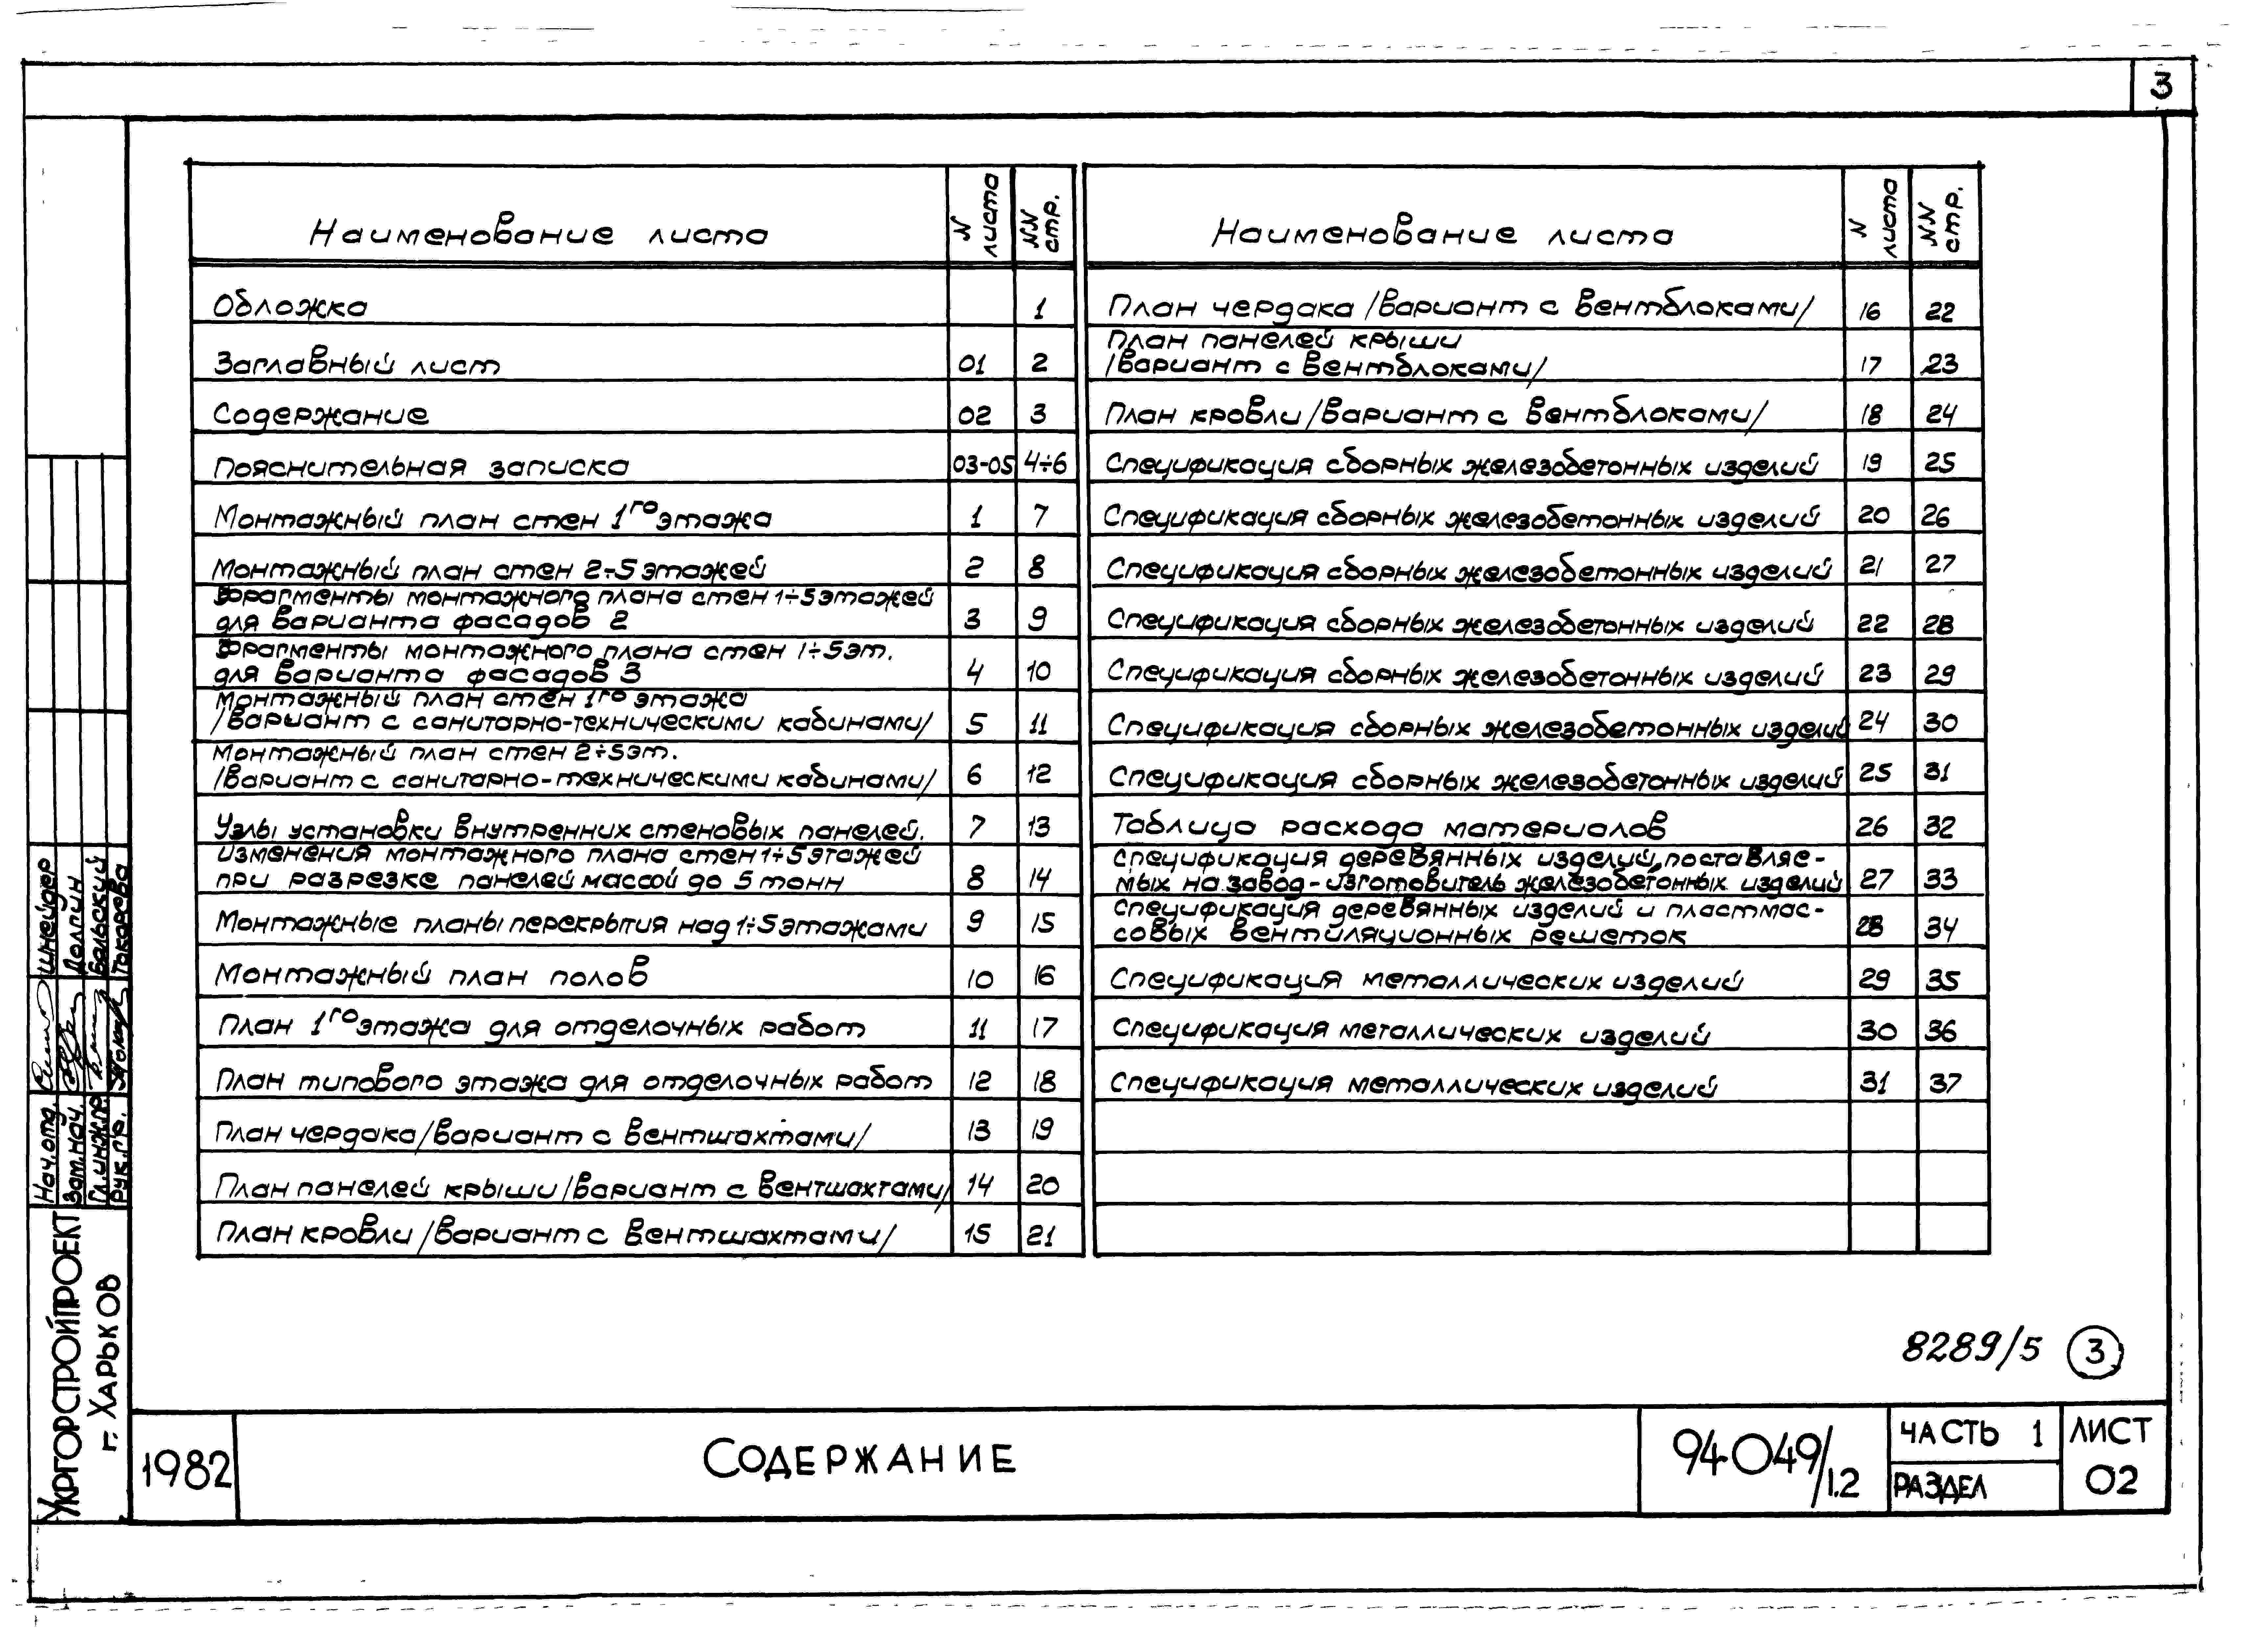 3
Наименование листа N листа NN стр.
Обложка 1
Заглавный лист 01 2
Содержание 02 3
Пояснительная записка 03-05 4÷6
Монтажный план стен 1го этажа 1 7
Монтажный план стен 2÷5 этажей 2 8
Фрагменты монтажного плана стен 1÷5 этажей
для варианта фасадов 2 3 9
Фрагменты монтажного плана стен 1÷5 эт.
для варианта фасадов 3 4 10
Монтажный план стен 1го этажа
/вариант с санитарно-техническими кабинами/ 5 11
Монтажный план стен 2÷5 эт.
/вариант с санитарно-техническими кабинами/ 6 12
Узлы установки внутренних стеновых панелей. 7 13
Изменения монтажного плана стен 1÷5 этажей
при разрезке панелей массой до 5 тонн 8 14
Монтажные планы перекрытия над 1÷5 этажами 9 15
Монтажный план полов 10 16
План 1го этажа для отделочных работ 11 17
План типового этажа для отделочных работ 12 18
План чердака /вариант с вентшахтами/ 13 19
План панелей крыши /вариант с вентшахтами/ 14 20
План кровли /вариант с вентшахтами/ 15 21
Наименование листа N листа NN стр.
План чердака /вариант с вентблоками/ 16 22
План панелей крыши
/вариант с вентблоками/ 17 23
План кровли /вариант с вентблоками/ 18 24
Спецификация сборных железобетонных изделий 19 25
Спецификация сборных железобетонных изделий 20 26
Спецификация сборных железобетонных изделий 21 27
Спецификация сборных железобетонных изделий 22 28
Спецификация сборных железобетонных изделий 23 29
Спецификация сборных железобетонных изделий 24 30
Спецификация сборных железобетонных изделий 25 31
Таблица расхода материалов 26 32
Спецификация деревянных изделий, поставляе-
мых на завод-изготовитель железобетонных изделий 27 33
Спецификация деревянных изделий и пластмас-
совых вентиляционных решеток 28 34
Спецификация металлических изделий 29 35
Спецификация металлических изделий 30 36
Спецификация металлических изделий 31 37
8289/5 3
Нач. отд. Шнейдер
Зам. нач. Долгин
Гл. инж. пр. Вальский
Рук. гр. Токарева
Укргорстройпроект
г. Харьков
1982
Содержание
94049/1.2
ЧАСТЬ 1
РАЗДЕЛ
ЛИСТ
02